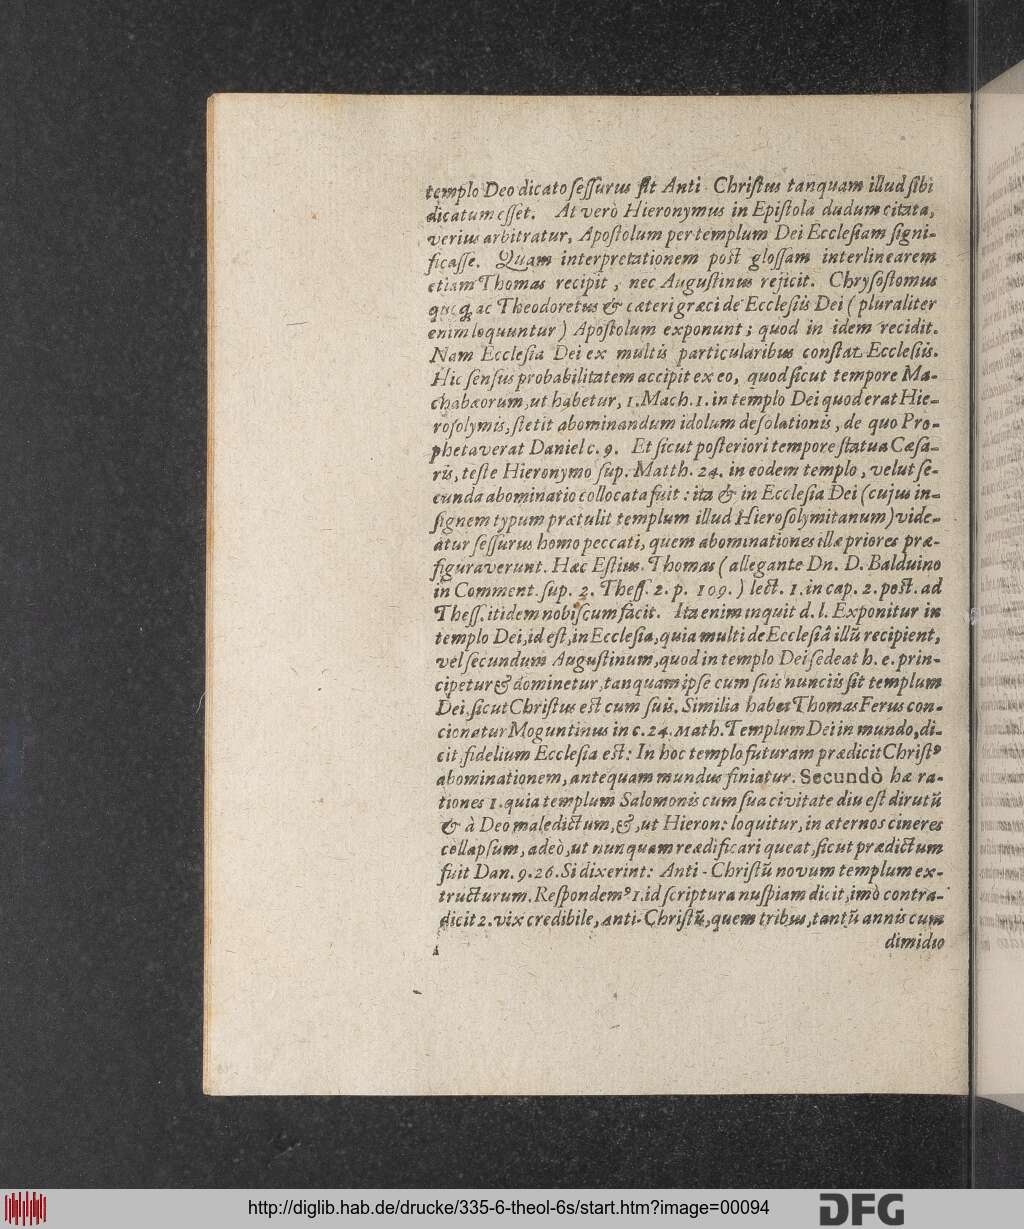 templo Deo dicato seſſurus ſit Anti-Chriſtus tanquam illud ſibi
dicatum eſſet. At verò Hieronymus in Epiſtola dudum citata,
verius arbitratur, Apoſtolum per templum Dei Eccleſiam ſigni-
ficaſſe. Quam interpretationem poſt gloſſam interlinearem
etiam Thomas recipit, nec Auguſtinus rejicit. Chryſoſtomus
quoq; ac Theodoretus & cæteri græci de Eccleſiis Dei (pluraliter
enim loquuntur) Apoſtolum exponunt; quod in idem recidit.
Nam Eccleſia Dei ex multis particularibus conſtat Eccleſiis.
Hic ſenſus probabilitatem accipit ex eo, quod ſicut tempore Ma-
chabæorum, ut habetur, 1. Mach. 1. in templo Dei quod erat Hie-
roſolymis, ſtetit abominandum idolum deſolationis, de quo Pro-
phetaverat Daniel c. 9. Et ſicut poſteriori tempore ſtatua Cæſa-
ris, teſte Hieronymo ſup. Matth. 24. in eodem templo, velut ſe-
cunda abominatio collocata fuit: ita & in Eccleſia Dei (cujus in-
ſignem typum prætulit templum illud Hieroſolymitanum) vide-
atur ſeſſurus homo peccati, quem abominationes illæ priores præ-
figuraverunt. Hæc Eſtius. Thomas (allegante Dn. D. Balduino
in Comment. ſup. 2. Theſſ. 2. p. 109.) lect. 1. in cap. 2. poſt. ad
Theſſ. itidem nobiſcum facit. Ita enim inquit d. l. Exponitur in
templo Dei, id eſt, in Eccleſia, quia multi de Eccleſiâ illũ recipient,
vel ſecundum Auguſtinum, quod in templo Dei ſedeat h. e. prin-
cipetur & dominetur, tanquam ipſe cum ſuis nunciis ſit templum
Dei, ſicut Chriſtus eſt cum ſuis. Similia habet Thomas Ferus con-
cionatur Moguntinus in c. 24. Math. Templum Dei in mundo, di-
cit, fidelium Eccleſia eſt: In hoc templo futuram prædicit Chriſtꝰ
abominationem, antequam mundus finiatur. Secundò hæ ra-
tiones 1. quia templum Salomonis cum ſua civitate diu eſt dirutũ
& à Deo maledictum, &, ut Hieron: loquitur, in æternos cineres
collapſum, adeò, ut nunquam reædificari queat, ſicut prædictum
fuit Dan. 9. 26. Si dixerint: Anti-Chriſtũ novum templum ex-
tructurum. Reſpondemꝰ 1. id ſcriptura nuſpiam dicit, imò contra-
dicit 2. vix credibile, anti-Chriſtũ, quem tribus, tantũ annis cum
dimidio
http://diglib.hab.de/drucke/335-6-theol-6s/start.htm?image=00094
DFG